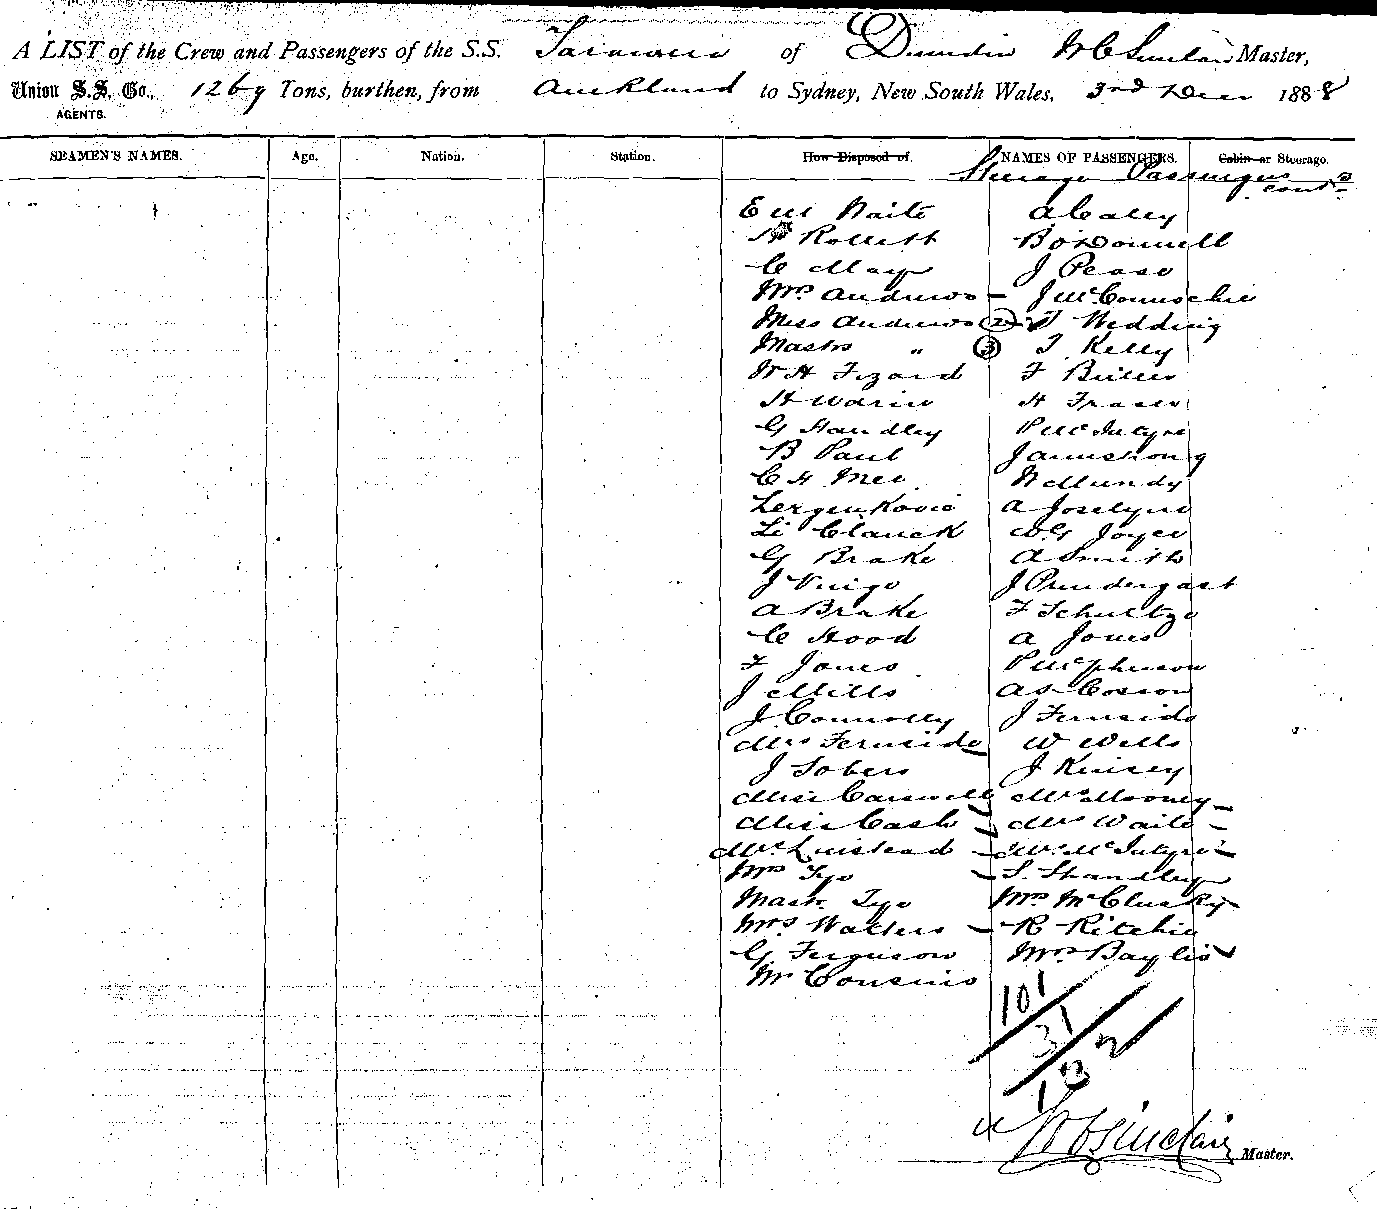 A LIST of the Crew and Passengers of the S.S. Tarawera of Dunedin W C Sinclair Master,
Union S.S. Co., 1269 Tons, burthen, from Auckland to Sydney, New South Wales, 3rd Decr 1888
AGENTS.
SEAMEN'S NAMES. Age. Nation. Station. How Disposed of. NAMES OF PASSENGERS. Cabin or Steerage.
Steerage Passengers contd
E W Waite A Caley
H Rolleth B O'Donnell
C May J Pease
Mrs Andrews — J McConnochie
Miss Andrews (2) T Wedding
Mastrs " (3) T Kelly
W H Fizard F Butler
H Warin H Fraser
G Handley P McIntyre
B Paul J Armstrong
C H Mee W Mundy
A Joselyne
Li Clanck W G Joyce
G Brake A Smith
J Virigo J Prendergast
A Brake F Schultze
C Hood A Jones
F Jones P McPherson
J Mills A S Cosson
J Connolly J Fernside
Mrs Fernside W Wells
J Sobers J Kinsey
Miss Carswell Mrs Mooney —
Miss Cash — Mrs Waite —
Mrs Linstead — Mrs McIntyre —
Mrs Tye — S. Standley
Mastr Tye Mrs McClusky —
Mrs Watters — R Ritchie
G Ferguson Mrs Baylis
Mr Cousins
101
31
132
W C Sinclair Master.